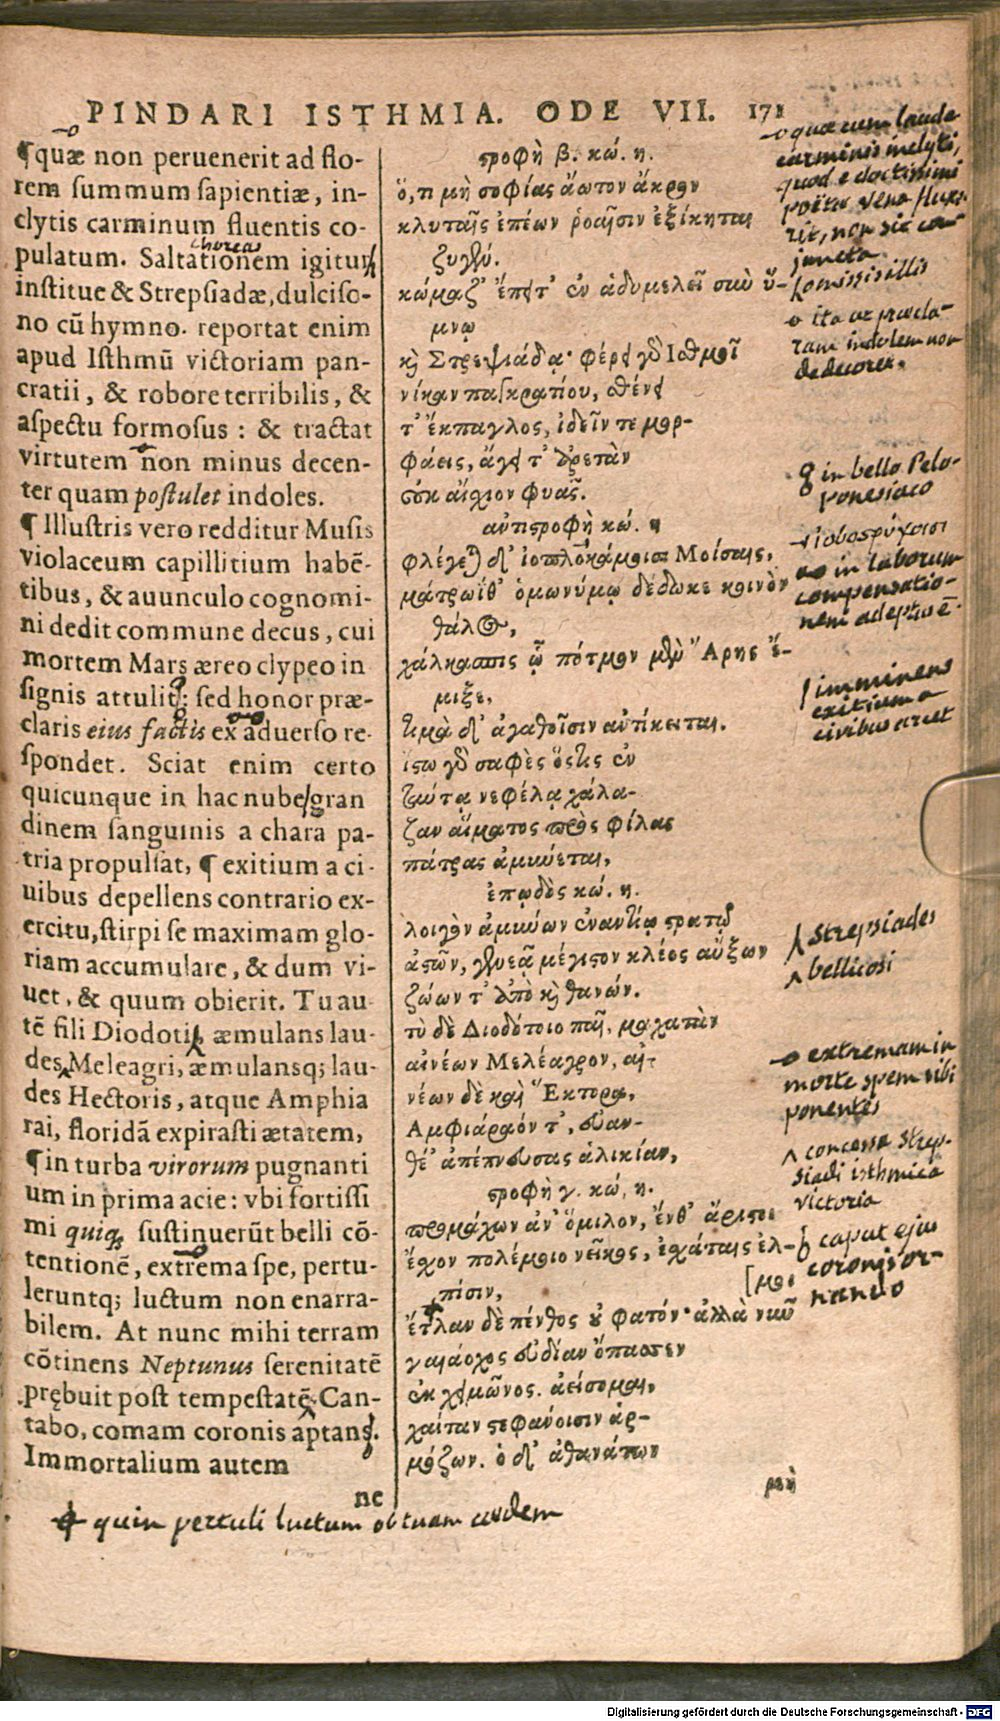 PINDARI ISTHMIA. ODE VII. 171
¶quæ non peruenerit ad flo-
rem summum sapientiæ, in-
clytis carminum fluentis co-
pulatum. Saltationem igitur
choreas
institue & Strepsiadæ, dulciso-
no cū hymno. reportat enim
apud Isthmū victoriam pan-
cratii, & robore terribilis, &
aspectu formosus : & tractat
virtutem non minus decen-
ter quam postulet indoles.
¶ Illustris vero redditur Musis
violaceum capillitium habē-
tibus, & auunculo cognomi-
ni dedit commune decus, cui
mortem Mars æreo clypeo in
signis attulit: sed honor præ-
claris eius factis ex aduerso re-
spondet. Sciat enim certo
quicunque in hac nube gran
dinem sanguinis a chara pa-
tria propulsat, ¶ exitium a ci-
uibus depellens contrario ex-
ercitu, stirpi se maximam glo-
riam accumulare, & dum vi-
uet, & quum obierit. Tu au
tē fili Diodoti, æmulans lau-
des Meleagri, æmulansq; lau-
des Hectoris, atque Amphia
rai, floridā expirasti ætatem,
¶in turba virorum pugnanti
um in prima acie : vbi fortissi
mi quiq; sustinuerūt belli cō-
tentionē, extrema spe, pertu-
leruntq; luctum non enarra-
bilem. At nunc mihi terram
cōtinens Neptunus serenitatē
prębuit post tempestatē. Can-
tabo, comam coronis aptans.
Immortalium autem
ne
ϛροφὴ β. κώ. η.
ὅ,τι μὴ σοφίας ἄωτον ἄκρον
κλυταῖς ἐπέων ῥοαῖσιν ἐξίκηται
ζυγέν.
κώμαζ' ἔπειτ' ἐν ἁδυμελεῖ σιωὺ ὕ-
μνῳ
κὶ Στρεψιάδᾳ· φέρει γὸ Ισθμοῖ
νίκαν παγκρατίου, σθένει
τ' ἔκπαγλος, ἰδεῖν τε μορ-
φάεις, ἄγει τ' ἀρετὰν
οὐκ αἴσχιον φυᾶς.
ἀντιϛροφὴ κώ. η
φλέγεται δ' ἰοπλοκάμοισι Μοίσαις,
μάτρωΐ θ' ὁμωνύμῳ δέδωκε κοινὸν
θάλος,
χάλκασπις ᾧ πότμον μὲν Ἄρης ἔ-
μιξε,
τιμὰ δ' ἀγαθοῖσιν ἀντίκειται.
ἴϛω γὸ σαφὲς ὅϛις ἐν
ταύτᾳ νεφέλᾳ χάλα-
ζαν αἵματος πρὸς φίλας
πάτρας ἀμύνεται,
ἐπῳδὸς κώ. η.
λοιγὸν ἀμύνων ἐναντίῳ ϛρατῷ
ἀϛῶν, γενεᾷ μέγιϛον κλέος αὔξων
ζώων τ' ἀπὸ κὶ θανών.
τὺ δὲ Διοδότοιο παῖ, μαχατὰν
αἰνέων Μελέαγρον, αἰ-
νέων δὲ καὶ Ἕκτορα,
Αμφιάραόν τ', εὐαν-
θέ' ἀπέπνευσας ἁλικίαν,
ϛροφὴ γ. κώ. η.
προμάχων ἀν' ὅμιλον, ἔνθ' ἄριϛοι
ἔσχον πολέμοιο νεῖκος, ἐσχάταις ἐλ-
πίσιν, [μοι
ἔτλαν δὲ πένθος οὐ φατόν· ἀλλὰ νιωῦ
γαιάοχος εὐδίαν ὄπασσεν
ἐκ χειμῶνος. ἀείσομαι,
χαίταν ϛεφάνοισιν ἁρ-
μόζων. ὁ δ' ἀθανάτων
μὴ
quæ cum laude
carminis inclyti,
quod e doctissimi
poëtæ vena fluxe-
rit, non sit con-
juncta
ita ut præcla-
ram indolem non
dedecoret.
in bello Pelo-
ponesiaco
in laborum
compensatio-
nem adeptus ē.
imminens
exitium a
civibus arcet
Strepsiades
bellicosi
extremam in
morte spem sibi
ponentes
concessa Strep-
siadi isthmica
victoria
caput ejus
coronis or-
nando
quin pertuli luctum ob tuam cædem
Digitalisierung gefördert durch die Deutsche Forschungsgemeinschaft - DFG